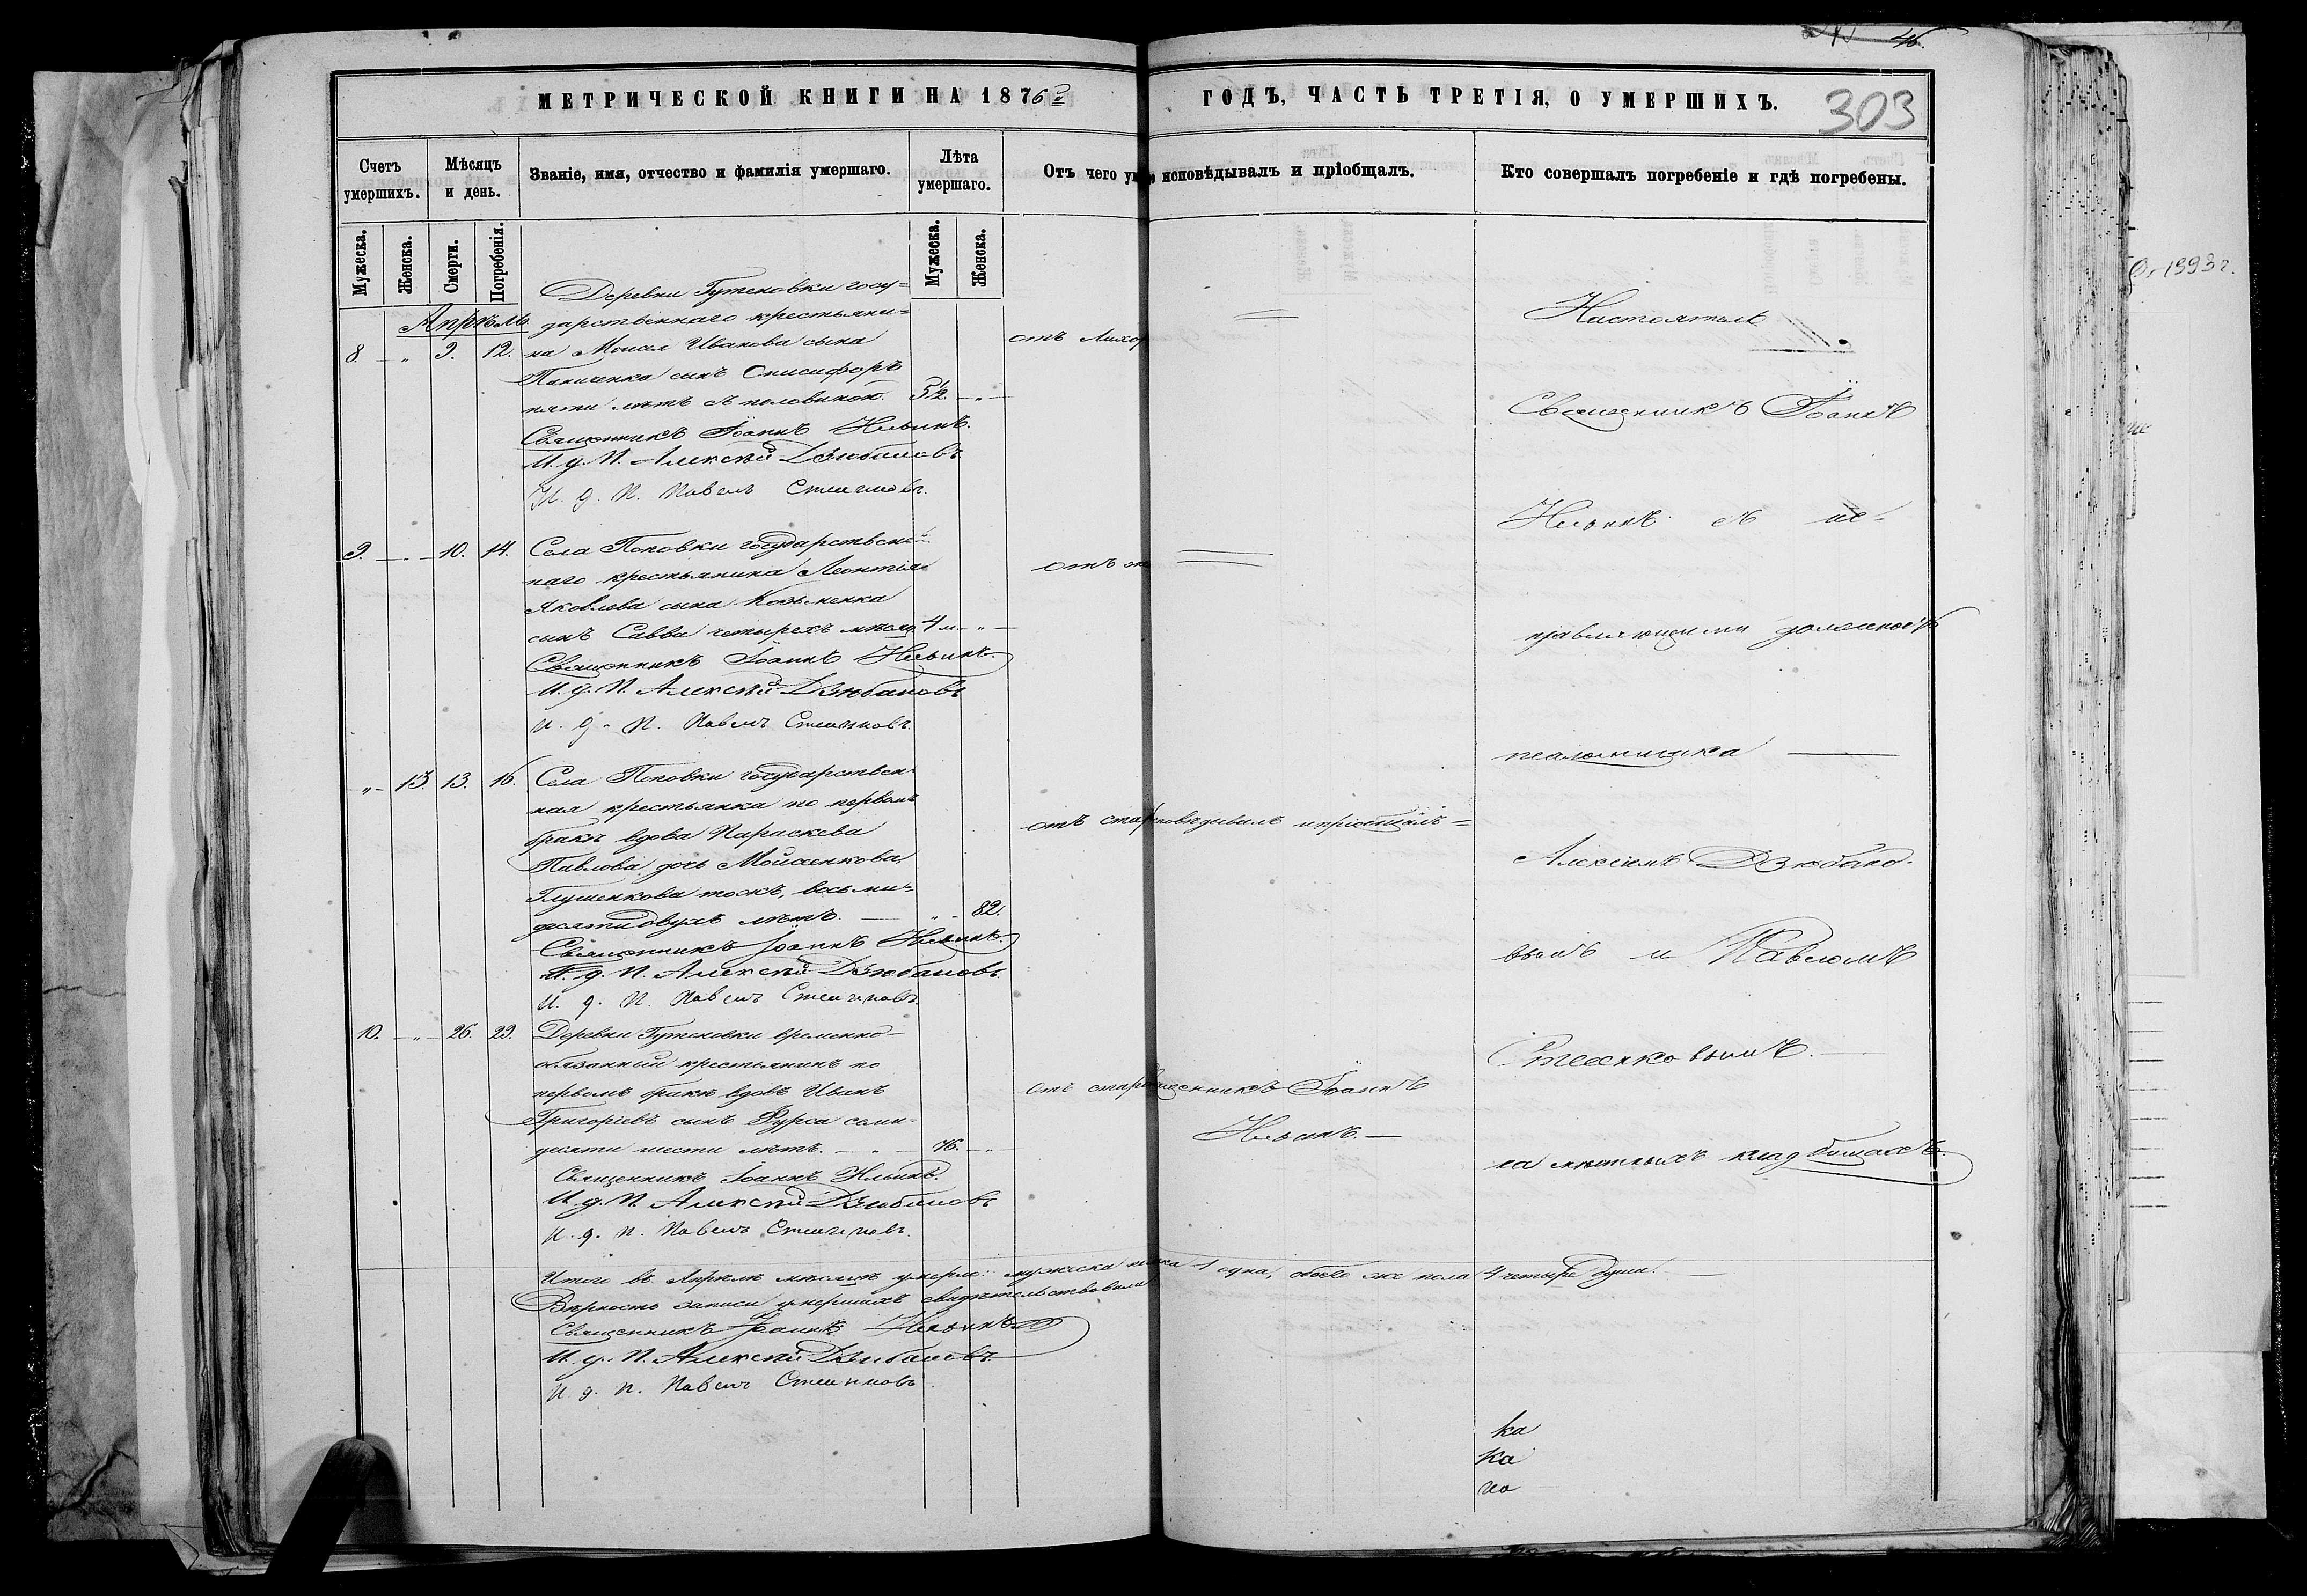 46.
МЕТРИЧЕСКОЙ КНИГИ НА 1876й ГОДЪ, ЧАСТЬ ТРЕТІЯ, О УМЕРШИХЪ.
303
Счетъ умершихъ.
Мѣсяцъ и день.
Званіе, имя, отчество и фамилія умершаго.
Лѣта умершаго.
Отъ чего
исповѣдывалъ и пріобщалъ.
Кто совершалъ погребеніе и гдѣ погребены.
Мужеска.
Женска.
Смерти.
Погребенія.
Мужеска.
Женска.
Апрѣль
Деревни Гутеновки госу=
дарственнаго крестьяни=
8. - " 9. 12. на Моисея Иванова сына
сынъ Онисифоръ
пяти лѣтъ съ половиной. 5½ - " -
отъ Лихор
Священникъ Іоаннъ Ильинъ.
И. д. П. Алексѣй Дзюбановъ
И. д. П. Павелъ
9. - " - 10. 14. Села Поповки государствен=
наго крестьянина Леонтія
Яковлева сына Козьменка
сынъ Савва четырехъ 4 м - " -
отъ
Священникъ Іоаннъ Ильинъ.
И. д. П. Алексѣй Дзюбановъ
И. д. П. Павелъ
- " - 13. 13. 16. Села Поповки государствен=
ная крестьянка по первомъ
бракѣ вдова Параскева
Павлова дочь Мойсенкова
Глушенкова тожъ, восьми=
десяти двухъ лѣтъ. — " - 82.
отъ стар
исповѣдывалъ и пріобщалъ =
Священникъ Іоаннъ Ильинъ.
И. д. П. Алексѣй Дзюбановъ.
И. д. П. Павелъ
10. - " - 26. 29. Деревни Гутеновки временно-
обязанный крестьянинъ по
первомъ бракѣ вдовъ Иванъ
Григоріевъ сынъ Фурса семи=
десяти шести лѣтъ. - " - 76. - " -
отъ стар
священникъ Іоаннъ
Ильинъ. —
Священникъ Іоаннъ Ильинъ.
И. д. П. Алексѣй Дзюбановъ
И. д. П. Павелъ
Итого въ Апрѣлѣ мѣсяцѣ умерло: мужеска 1 одна, обоего же пола 4 четыре души. —
Вѣрность записи умершихъ свидѣтельствовали
Священникъ Іоаннъ Ильинъ
И. д. П. Алексѣй Дзюбановъ.
И. д. П. Павелъ
Настоятель
Священникъ Іоаннъ
Ильинъ съ ис-
правляющими должность
псаломщика —
Алексѣемъ Дзюбано-
вымъ и Павломъ
на мѣстныхъ кладбищахъ.
ка
ка
но
1993 г.